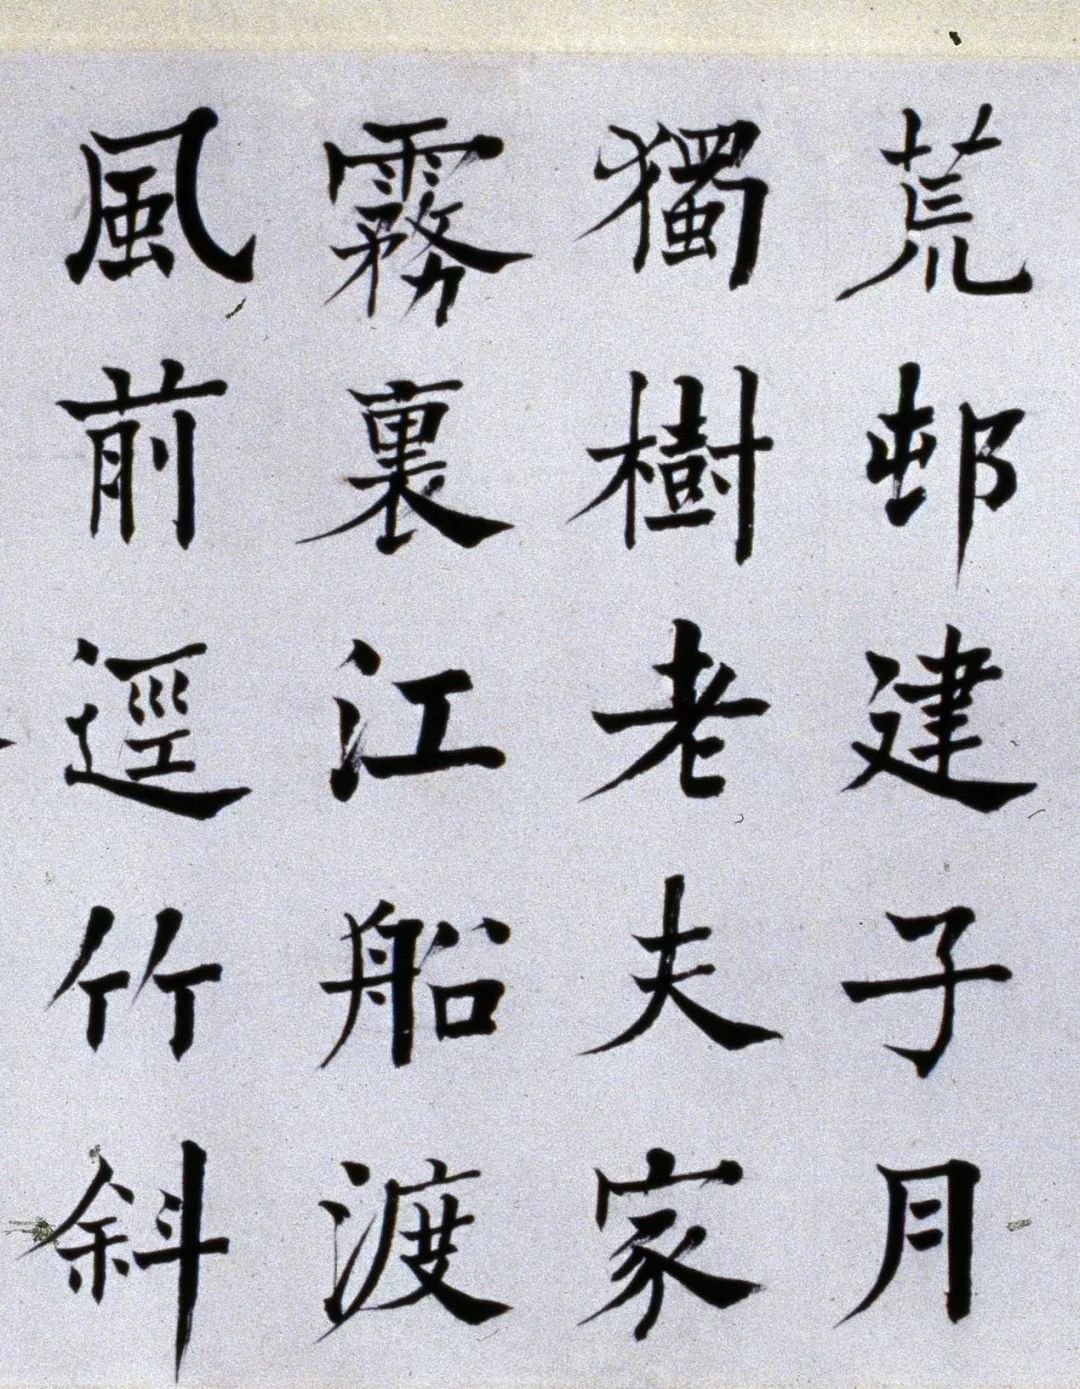 荒邨建子月
獨樹老夫家
霧裏江船渡
風前逕竹斜